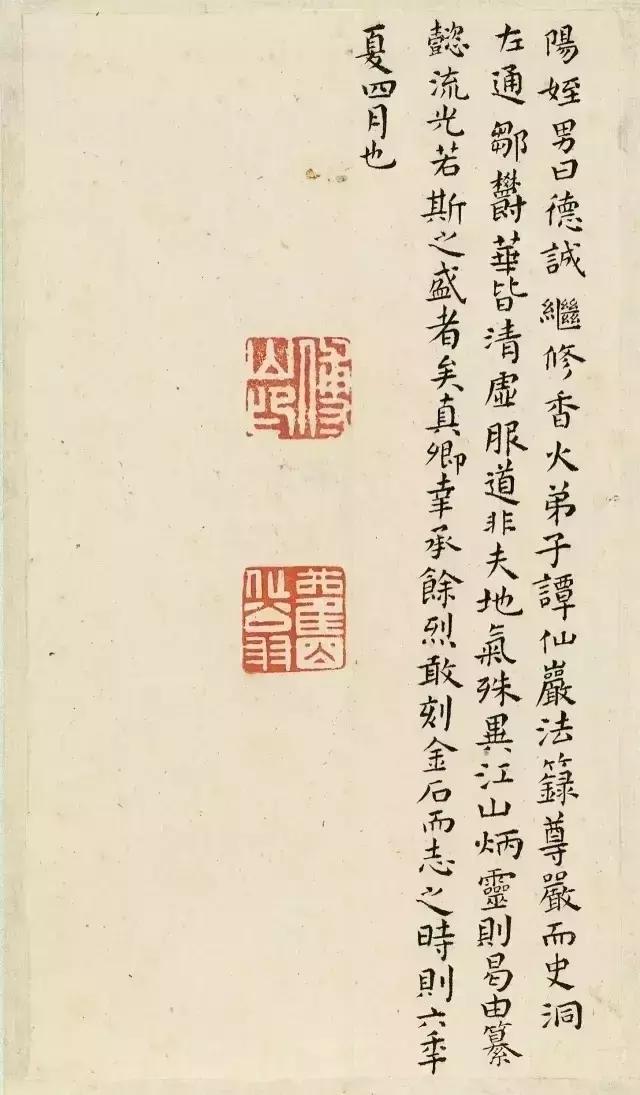 陽姪男曰德誠繼修香火弟子譚仙巖法籙尊嚴而史洞
左通鄒欝華皆清虛服道非夫地氣殊異江山炳靈則曷由纂
懿流光若斯之盛者矣真卿幸承餘烈敢刻金石而志之時則六秊
夏四月也
傅山印